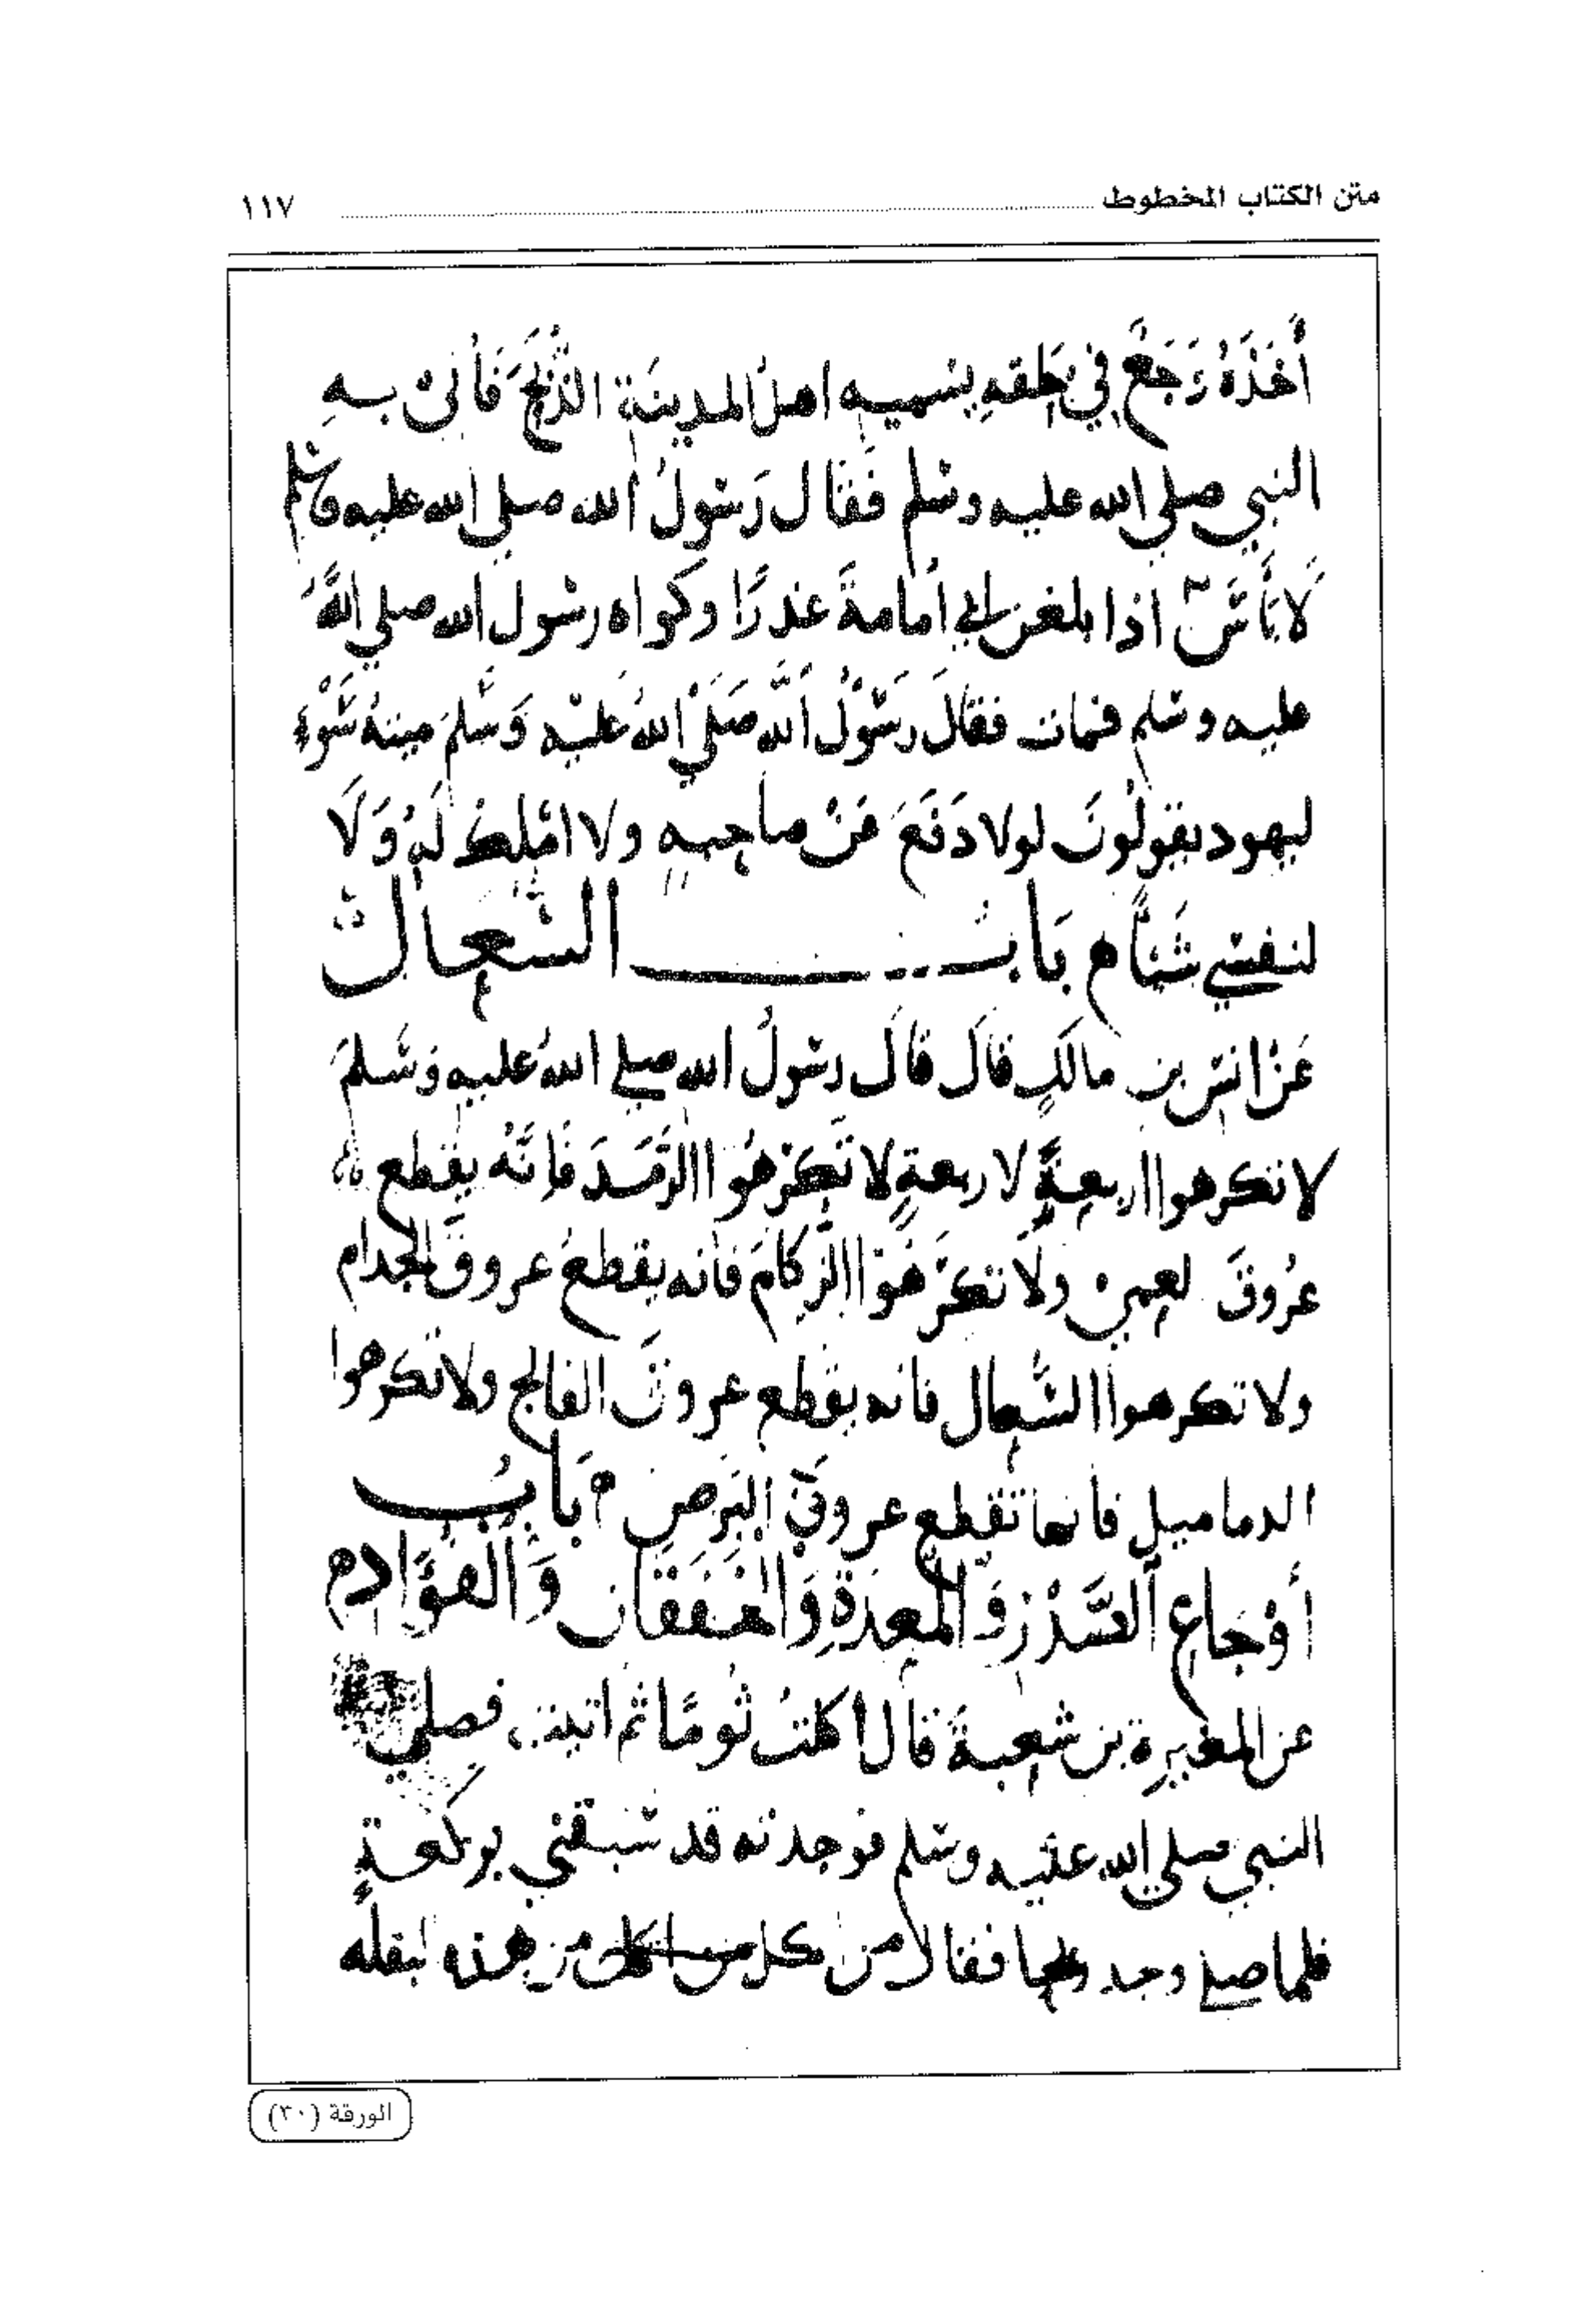 متن الكتاب المخطوط ١١٧
أَخَذَهُ وَجَعٌ فِي حَلقهِ يسميه اهلُ المدينَة الذُّبَحَ فَأتىَ بهِ
النبي صلي الله عليه وسلم فَقَال رَسُولُ الله صلي الله عليه وسلم
لَا بَأسَ اذا بلغن ابي أمامةَ عذرًا وكواه رسُول الله صلي اللَّهُ
عليه وسلم فمات فقالَ رَسُولُ اللَّه صَلَي اللهُ عَليْه وَسَّلمَ ميتةُ سَوْءٍ
ليهود يقولُونَ لولا دَفَعَ عَنْ صاحبهِ ولا املكُ لَهُ وَلَا
لنفسي شَيئًا م بَابُ السُّعال
عَنْ انس بن مالكٍ قالَ قالَ رسُولُ الله صلي اللهُ عليهِ وَسَلمَ
لا تكرهوا اربعةً لاربعةٍ لا تَكْرهُوا الرَّمَدَ فَاِنَّهُ يقطع
عُرُوقَ لعمي ولَا تكرَهُوا الزكامَ فانه يقطعُ عروقَ الجدام
ولا تكرهوا السُّعال فانه يقطع عروقَ الفالج ولا تكرهوا
الدماميل فانها تقطع عروقَ البَرَصِ م بَابُ
أَوْجَاع الصَّدْرِ وَ المَعِدَةِ وَالخَفَقَان وَالفُؤَادِ م
عن المغيرةِ بن شعبةَ قال أكلتُ ثُومًا ثم اتيت فصلي
النبي صلي الله عليه وسلم فوجدته قد سَبقني بركعةٍ
فلما صلي وجد ريحا فقال من اكل من هذه لبقله
الورقة (٣٠)